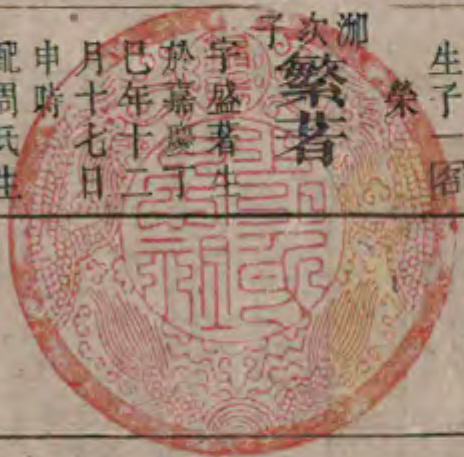 生子一名
榮
次子
繁著
字盛著生
於嘉慶丁
巳年十二
月十七日
申時
配周氏生